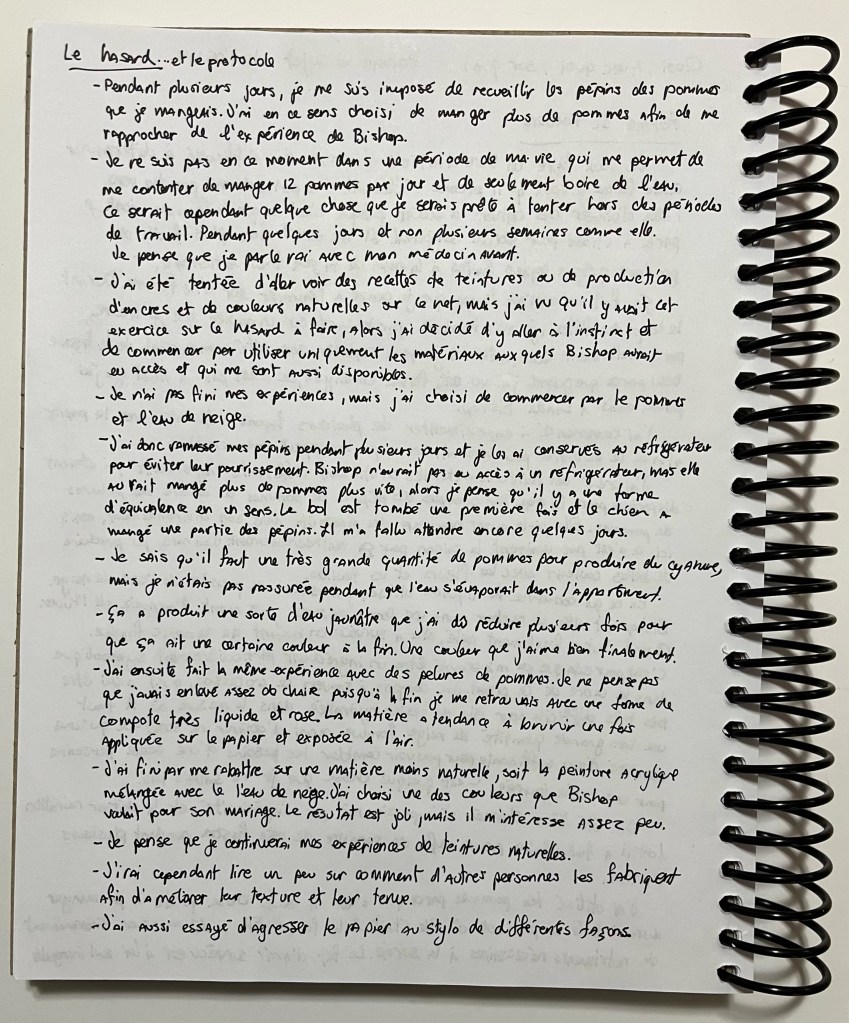 Le hasard...et le protocole
- Pendant plusieurs jours, je me suis imposé de recueillir les pépins des pommes
que je mangeais. J'ai en ce sens choisi de manger plus de pommes afin de me
rapprocher de l'expérience de Bishop.
- Je ne suis pas en ce moment dans une période de ma vie qui me permet de
me contenter de manger 12 pommes par jour et de seulement boire de l'eau.
Ce serait cependant quelque chose que je serais prête à tenter hors des périodes
de travail. Pendant quelques jours et non plusieurs semaines comme elle.
Je pense que je parlerai avec mon médecin avant.
- J'ai été tentée d'aller voir des recettes de teintures ou de production
d'encres et de couleurs naturelles sur le net, mais j'ai vu qu'il y avait cet
exercice sur le hasard à faire, alors j'ai décidé d'y aller à l'instinct et
de commencer par utiliser uniquement les matériaux auxquels Bishop aurait
eu accès et qui me sont aussi disponibles.
- Je n'ai pas fini mes expériences, mais j'ai choisi de commencer par le pommes
et l'eau de neige.
- J'ai donc ramassé mes pépins pendant plusieurs jours et je les ai conservés au réfrigérateur
pour éviter leur pourrissement. Bishop n'aurait pas eu accès à un réfrigérateur, mais elle
aurait mangé plus de pommes plus vite, alors je pense qu'il y a une forme
d'équivalence en un sens. Le bol est tombé une première fois et le chien a
mangé une partie des pépins. Il m'a fallu attendre encore quelques jours.
- Je sais qu'il faut une très grande quantité de pommes pour produire du cyanure,
mais je n'étais pas rassurée pendant que l'eau s'évaporait dans l'appartement.
- Ça a produit une sorte d'eau jaunâtre que j'ai dû réduire plusieurs fois pour
que ça ait une certaine couleur à la fin. Une couleur que j'aime bien finalement.
- J'ai ensuite fait la même expérience avec des pelures de pommes. Je ne pense pas
que j'avais enlevé assez de chair puisqu'à la fin je me retrouvais avec une forme de
compote très liquide et rose. La matière a tendance à brunir une fois
appliquée sur le papier et exposée à l'air.
- J'ai fini par me rabattre sur une matière moins naturelle, soit la peinture acrylique
mélangée avec le l'eau de neige. J'ai choisi une des couleurs que Bishop
voulait pour son mariage. Le résutat est joli, mais il m'intéresse assez peu.
- Je pense que je continuerai mes expériences de teintures naturelles.
- J'irai cependant lire un peu sur comment d'autres personnes les fabriquent
afin d'améliorer leur texture et leur tenue.
- J'ai aussi essayé d'agresser le papier au stylo de différentes façons.